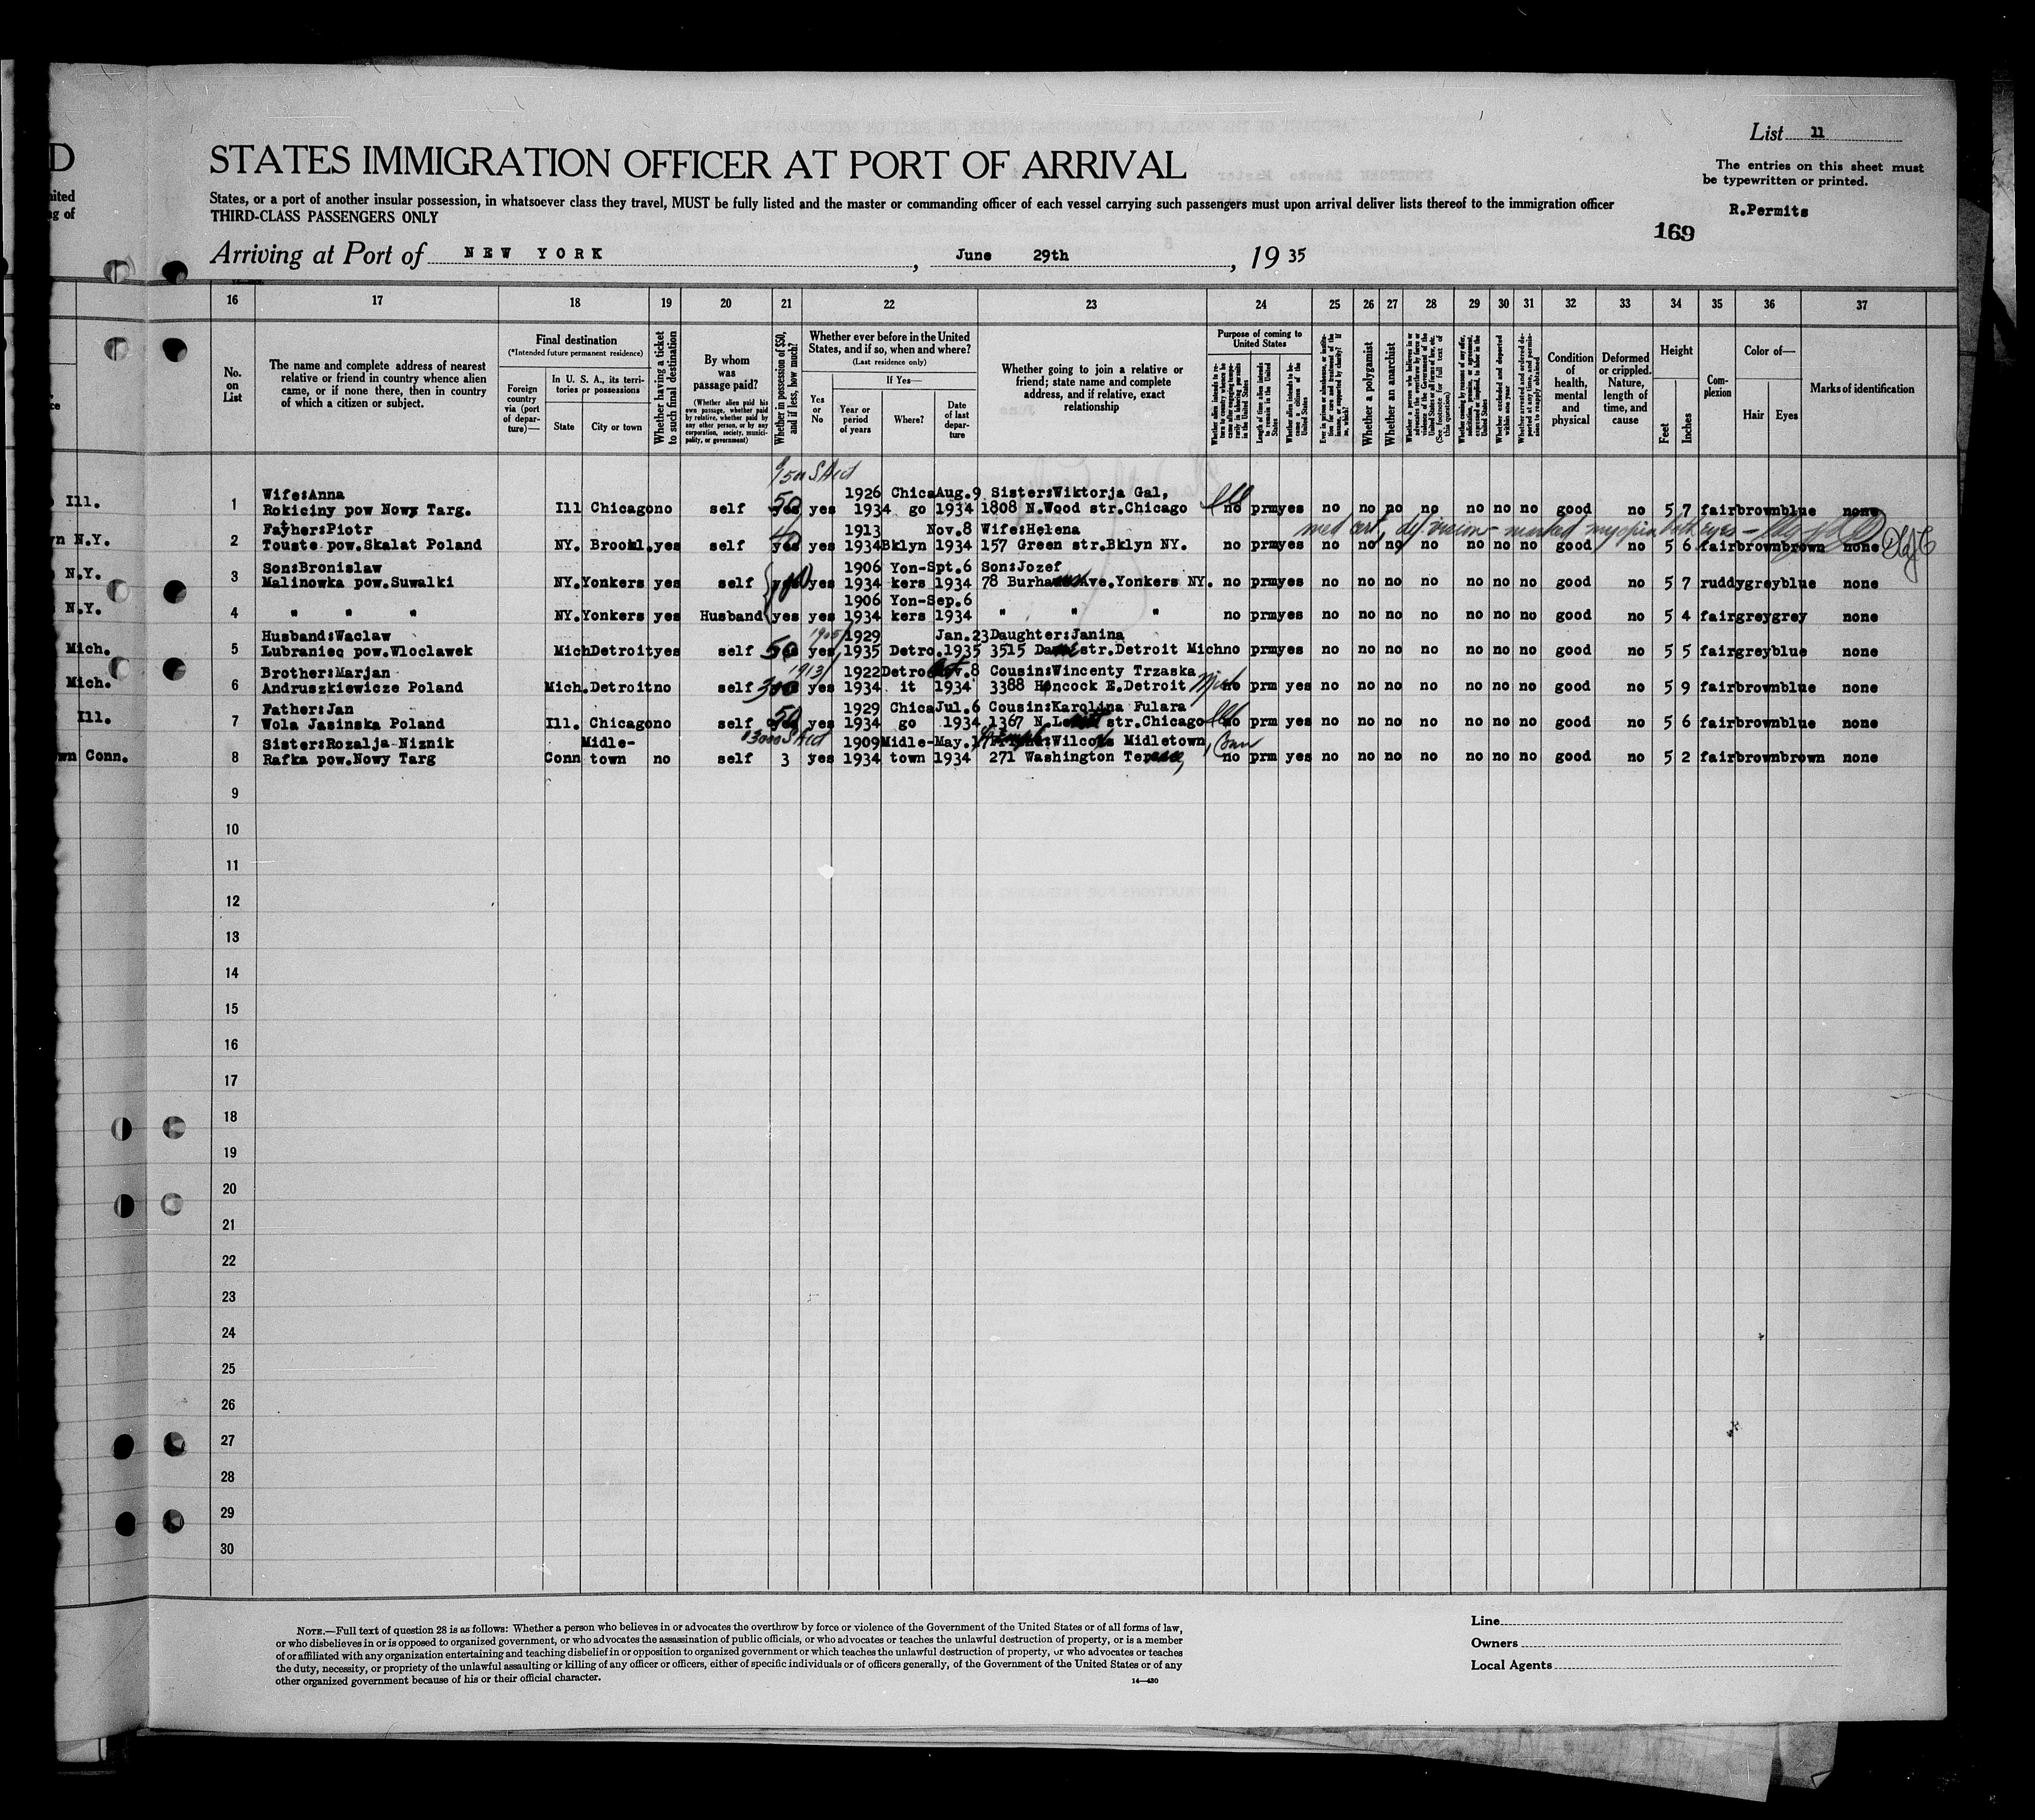 D
STATES IMMIGRATION OFFICER AT PORT OF ARRIVAL
List 11
The entries on this sheet must
be typewritten or printed.
R.Permits
169
States, or a port of another insular possession, in whatsoever class they travel, MUST be fully listed and the master or commanding officer of each vessel carrying such passengers must upon arrival deliver lists thereof to the immigration officer
THIRD-CLASS PASSENGERS ONLY
Arriving at Port of NEW YORK, June 29th, 19 35
16 17 18 19 20 21 22 23 24 25 26 27 28 29 30 31 32 33 34 35 36 37
No. on List
The name and complete address of nearest relative or friend in country whence alien came, or if none there, then in country of which a citizen or subject.
Final destination
(*Intended future permanent residence)
Foreign country via (port of departure)—
In U. S. A., its territories or possessions
State
City or town
Whether having a ticket to such final destination
By whom was passage paid?
(Whether alien paid his own passage, whether paid by relative, whether paid by any other person, or by any corporation, society, municipality, or government)
Whether in possession of $50, and if less, how much?
Whether ever before in the United States, and if so, when and where?
(Last residence only)
Yes or No
If Yes—
Year or period of years
Where?
Date of last departure
Whether going to join a relative or friend; state name and complete address, and if relative, exact relationship
Purpose of coming to United States
Whether a polygamist
Whether an anarchist
Condition of health, mental and physical
Deformed or crippled. Nature, length of time, and cause
Height
Feet
Inches
Complexion
Color of—
Hair
Eyes
Marks of identification
Wife:Anna 50 1926 Chica Aug.9 Sister:Wiktorja Gal, Ill
Ill. 1 Rokiciny pow Nowy Targ. Ill Chicago no self yes yes 1934 go 1934 1808 N.Wood str.Chicago no prm yes no no no no no no no good no 5 7 fair brown blue none
Father:Piotr 1913 Nov.8 Wife:Helena med cert, def. vision - marked myopia both eyes -
N.Y. 2 Touste pow.Skalat Poland NY. Brookl. yes self yes yes 1934 Bklyn 1934 157 Green str.Bklyn NY. no prm yes no no no no no no no good no 5 6 fair brown brown none
Son:Bronislaw 1906 Yon- Spt.6 Son:Jozef
N.Y. 3 Malinowka pow.Suwalki NY. Yonkers yes self yes 1934 kers 1934 78 Ave.Yonkers NY. no prm yes no no no no no no no good no 5 7 ruddy grey blue none
1906 Yon- Sep.6
N.Y. 4 " " " NY. Yonkers yes Husband yes yes 1934 kers 1934 " " " no prm yes no no no no no no no good no 5 4 fair grey grey none
Husband:Waclaw 1905/ 1929 Jan.23 Daughter:Janina
Mich. 5 Lubraniec pow.Wloclawek Mich Detroit yes self 50 yes 1935 Detro. 1935 3515 str.Detroit Mich no prm yes no no no no no no no good no 5 5 fair grey blue none
Brother:Marjan 1913/ 1922 Detro .8 Cousin:Wincenty Trzaska
Mich. 6 Andruszkiewicze Poland Mich. Detroit no self yes 1934 it 1934 3388 Hancock E.Detroit Mich no prm yes no no no no no no no good no 5 9 fair brown blue none
Father:Jan 50 1929 Chica Jul.6 Cousin:Karolina Fulara
Ill. 7 Wola Jasinska Poland Ill. Chicago no self yes yes 1934 go 1934 1367 N. str.Chicago Ill no prm yes no no no no no no no good no 5 6 fair brown blue none
Sister:Rozalja Niznik Midle- 1909 Midle- May. Midletown, Conn
Conn. 8 Rafka pow.Nowy Targ Conn town no self 3 yes 1934 town 1934 271 Washington no prm yes no no no no no no no good no 5 2 fair brown brown none
9
10
11
12
13
14
15
16
17
18
19
20
21
22
23
24
25
26
27
28
29
30
NOTE.—Full text of question 28 is as follows: Whether a person who believes in or advocates the overthrow by force or violence of the Government of the United States or of all forms of law,
or who disbelieves in or is opposed to organized government, or who advocates the assassination of public officials, or who advocates or teaches the unlawful destruction of property, or is a member
of or affiliated with any organization entertaining and teaching disbelief in or opposition to organized government or which teaches the unlawful destruction of property, or who advocates or teaches
the duty, necessity, or propriety of the unlawful assaulting or killing of any officer or officers, either of specific individuals or of officers generally, of the Government of the United States or of any
other organized government because of his or their official character.
14—430
Line
Owners
Local Agents